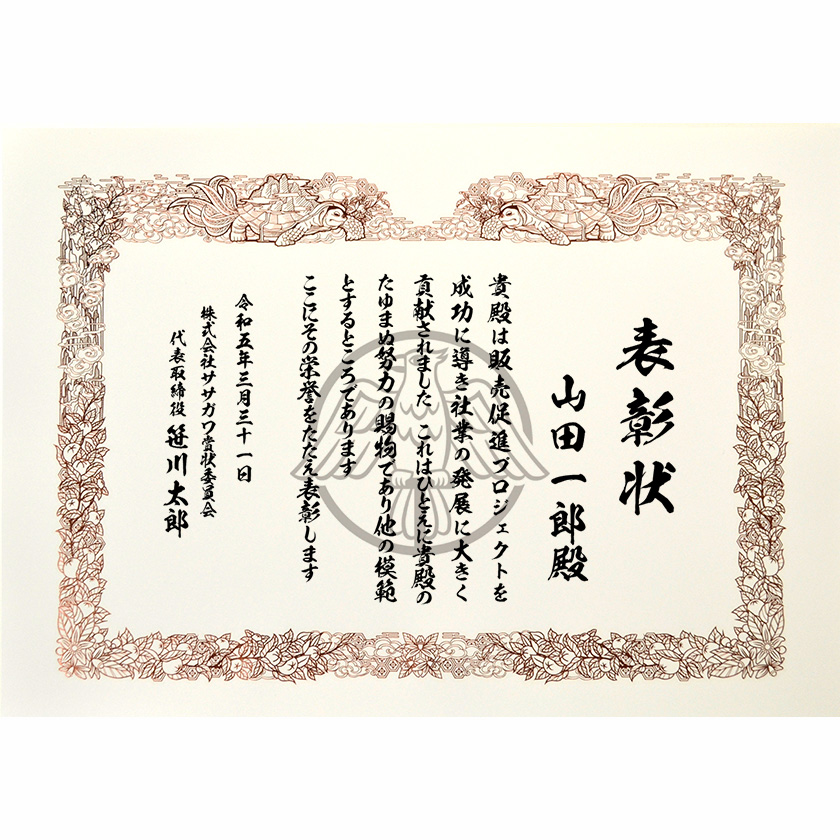 表彰状
山田一郎殿
貴殿は販売促進プロジェクトを
成功に導き社業の発展に大きく
貢献されました これはひとえに貴殿の
たゆまぬ努力の賜物であり他の模範
とするところであります
ここにその栄誉をたたえ表彰します
令和五年三月三十一日
株式会社ササガワ賞状委員会
代表取締役 笹川太郎